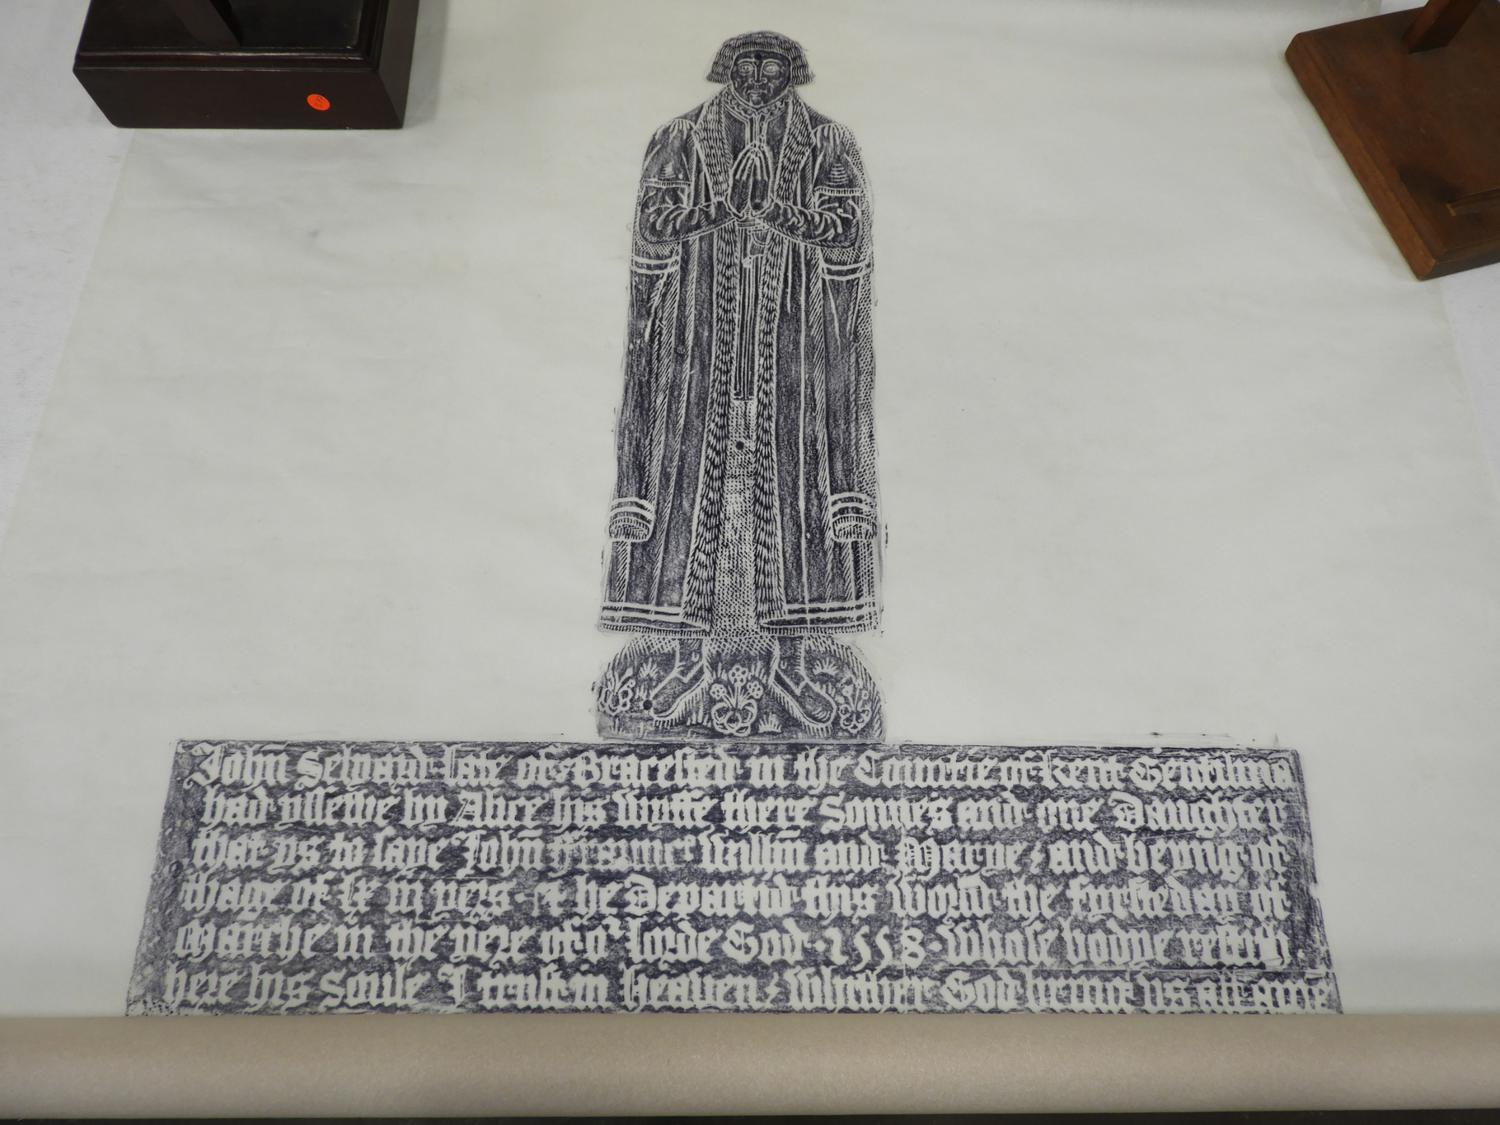 John Selyard late of Bracested in the Countie of Kent Gentilma
had yssewe by Alice his wyffe there Sonnes and one Daughter
that ys to saye John Willm and Marye & and beyng of
thage of lx iii yers & he Departid this World the fyrst day of
Marche in the yere of oʳ lorde God · 1558 · Whose bodye restith
here his Soule I trust in Heaven & Whither God bring us all ame